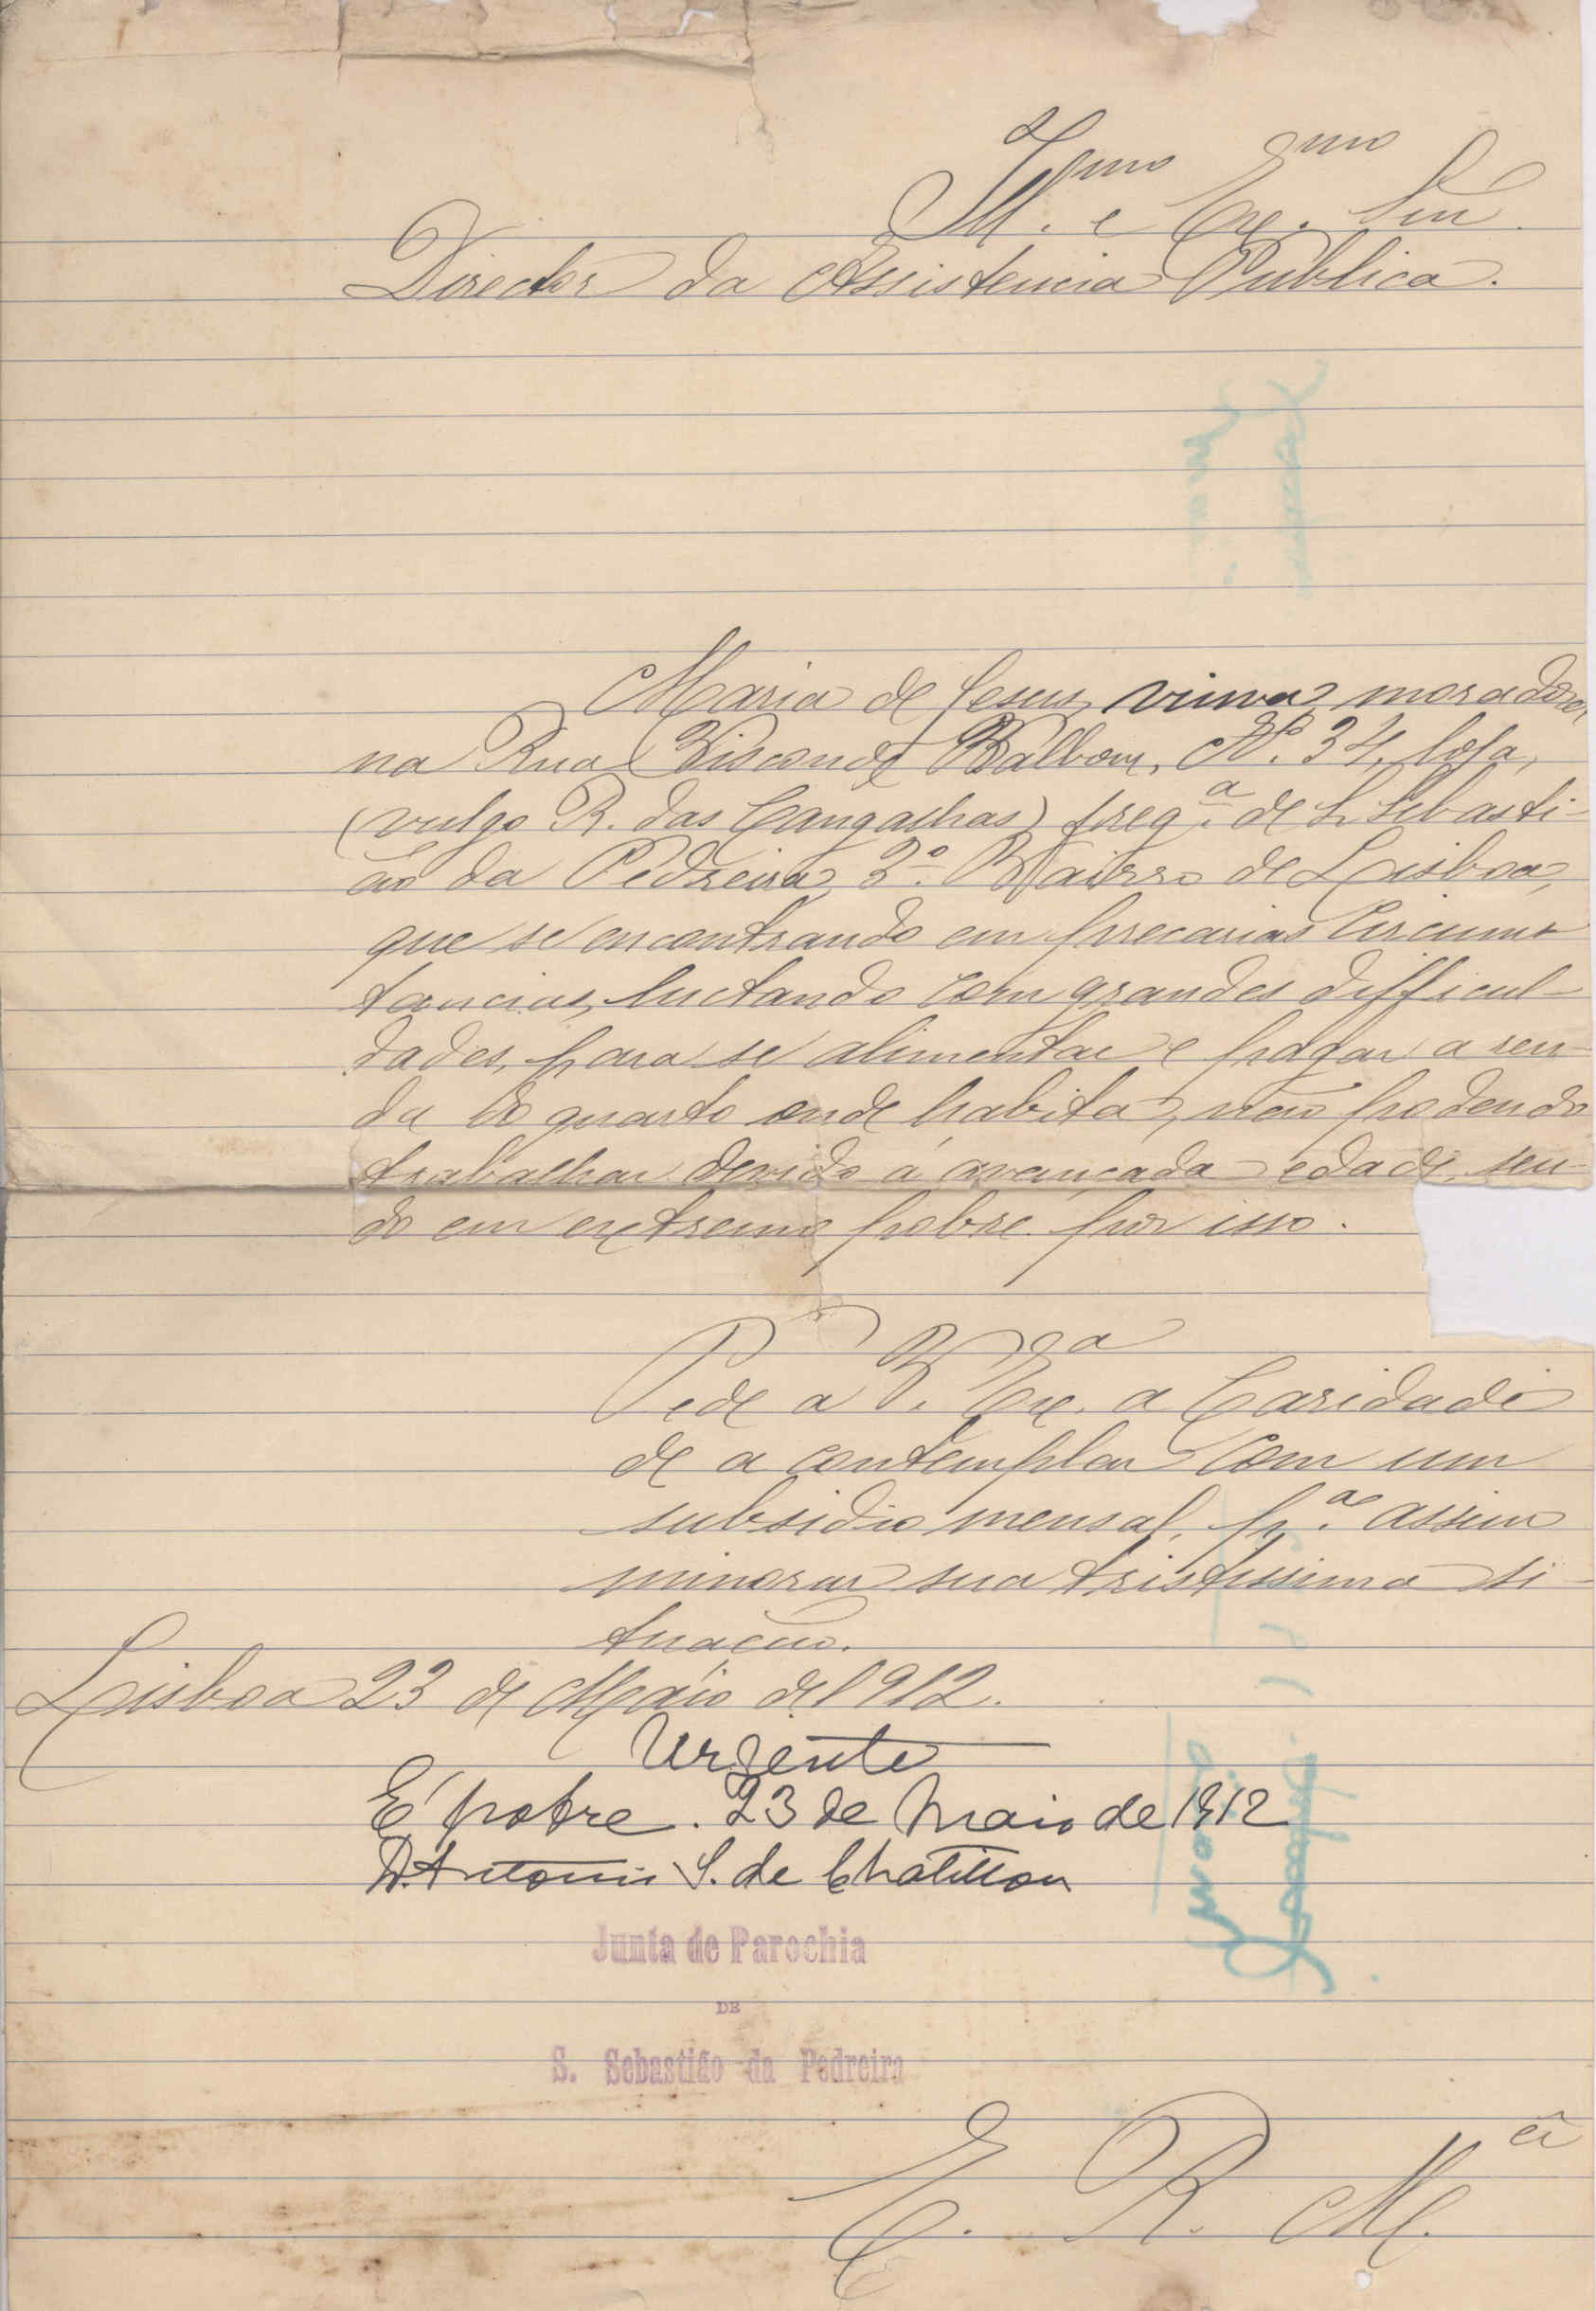 Ill.mo e Ex.mo Snr.
Director da Assistencia Publica.
Maria de Jesus, viuva, moradora
na Rua Visconde Valbom, Nº. 34, loja,
(vulgo R. das Cangalhas) freg.ª de S. Sebasti-
ão da Pedreira, 3º. Bairro de Lisboa,
que se encontrando em precarias circums-
tancias, luctando com grandes difficul-
dades, para se alimentar e pagar a ren-
da do quarto onde habita, não podendo
trabalhar devido á avançada edade, sen-
do em extremo pobre por isso.
Pede a V. Ex.ª a Caridade
de a contemplar com um
subsidio mensal, p.ª assim
minorar sua tristissima si-
tuação.
Lisboa 23 de Maio de 1912.
Urgente
É pobre. 23 de Maio de 1912
D. Antonio S. de Chatillon
Junta de Parochia
DE
S. Sebastião da Pedreira
E. R. M.cê